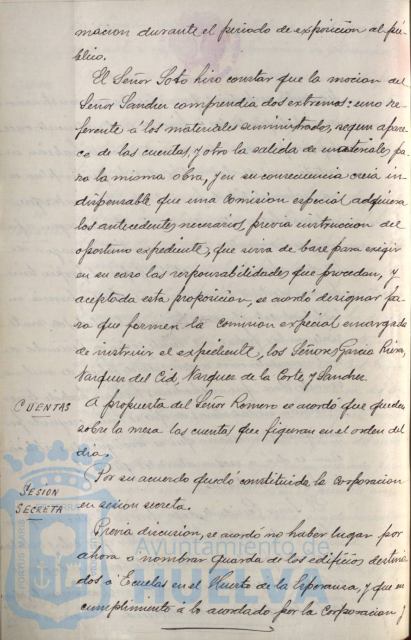 macion durante el periodo de exposición al pú-
blico.
El Señor Soto hizo constar que la mocion del
Señor Sanchez comprendia dos extremos: uno re-
ferente á los materiales suministrados, segun apare-
ce de las cuentas, y otro la salida de materiales, pa-
ra la misma obra, y en su consecuencia creia in-
dispensable que una Comision especial adquiera
los antecedentes necesarios, previa instruccion del
oportuno expediente, que sirva de base para exigir
en su caso las responsabilidades que procedan, y
aceptada esta proposicion, se acordó designar pa-
ra que formen la comision especial encargada
de instruir el expediente, los Señores Garcia
Vazquez del Cid, Vazquez de la Corte y Sanchez.
CUENTAS
A propuesta del Señor Romero se acordó que queden
sobre la mesa las cuentas que figuran en el orden del
dia.
SESION
SECRETA
Por su acuerdo quedó constituida la Corporacion
en sesion secreta.
Previa discusion, se acordó no haber lugar por
ahora a nombrar Guarda de los edificios destina-
dos á Escuelas en el Huerto de la Esperanza, y que en
cumplimiento á lo acordado por la Corporacion
Ayuntamiento de